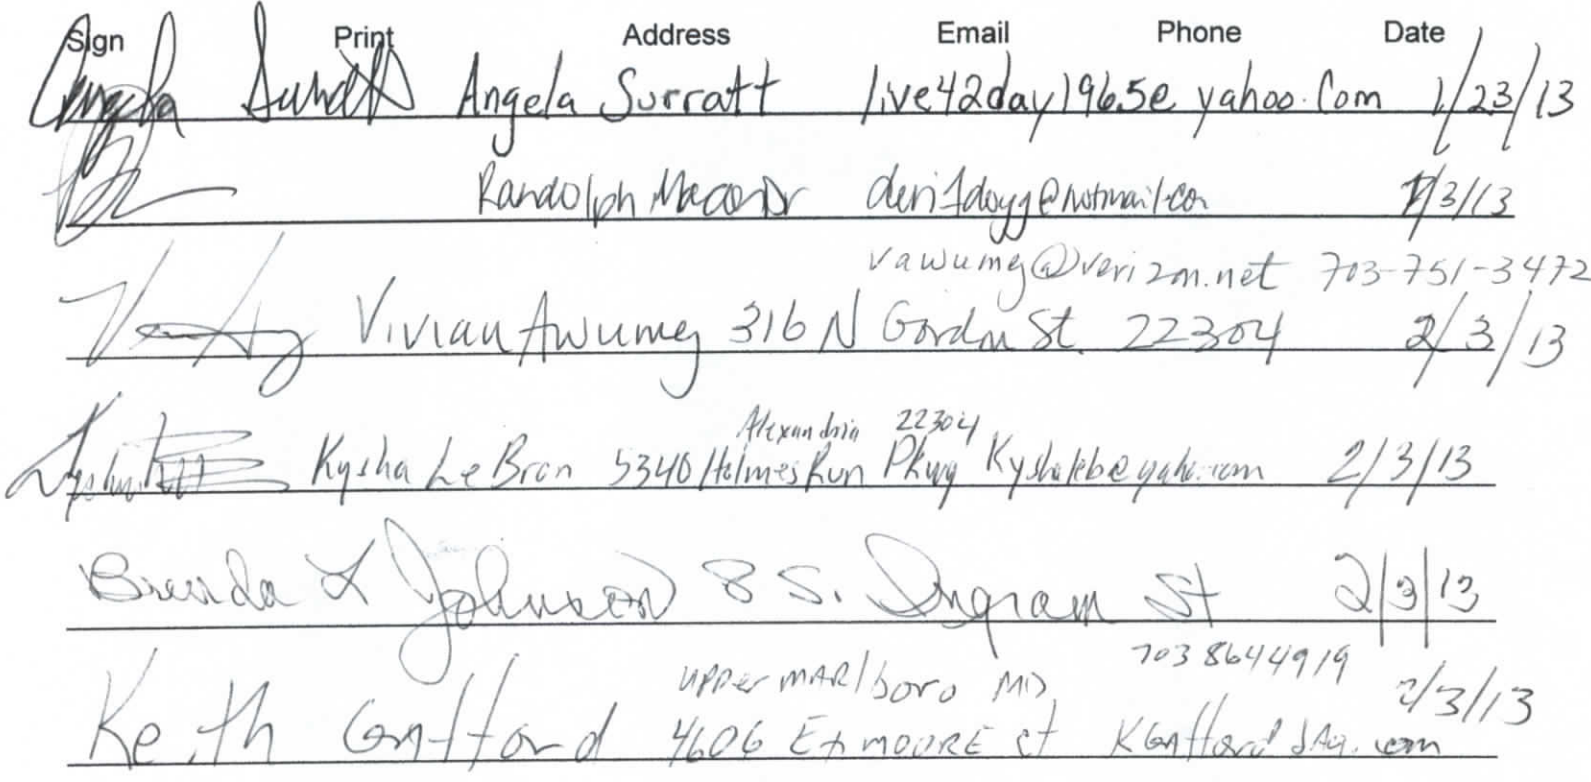 Sign Print Address Email Phone Date
Angela Surratt Angela Surratt live42day1965@yahoo.Com 1/23/13
Randolph /3/13
vawumey@verizon.net 703-751-3472
Vivian Awumey 316 N Gordon St 22304 2/3/13
Alexandria 22304
Kysha LeBron 5340 Holmes Run Pkwy Kyshaleb@yahoo.com 2/3/13
Brenda L Johnson 8 S. Ingram St 2/3/13
703 8644919
upper MARlboro MD 2/3/13
Keith 4606 ExmooRE ct